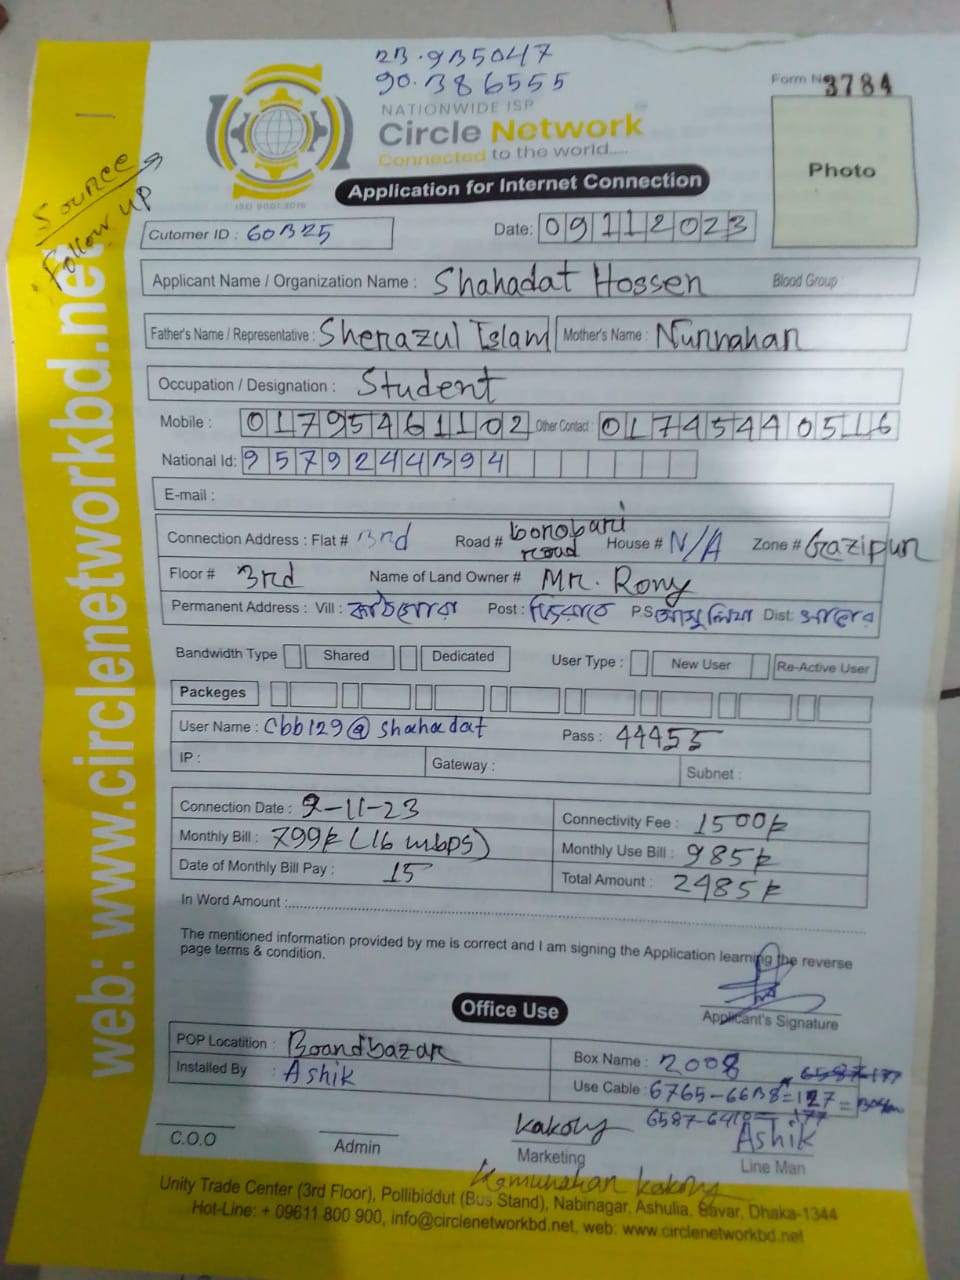 23.935047
90.386555
Form No 3784
NATIONWIDE ISP
Circle Network
Connected to the world.....
ISO 9001:2015
Application for Internet Connection
Photo
Source
Follow up
web: www.circlenetworkbd.net
Cutomer ID : 60325
Date: 09112023
Applicant Name / Organization Name : Shahadat Hossen Blood Group :
Father's Name / Representative : Sherazul Islam Mother's Name : Nurnahan
Occupation / Designation : Student
Mobile : 01795461102 Other Contact : 01745440516
National Id: 9579244394
E-mail :
Connection Address : Flat # 3rd Road # bonobari road House # N/A Zone # Gazipur
Floor # 3rd Name of Land Owner # Mr. Rony
Permanent Address : Vill : Post : P.S Dist:
Bandwidth Type Shared Dedicated User Type : New User Re-Active User
Packeges
User Name : Cbb129@shahadat Pass : 44455
IP : Gateway : Subnet :
Connection Date : 9-11-23 Connectivity Fee : 1500৳
Monthly Bill : 799৳ (16 mbps) Monthly Use Bill : 985৳
Date of Monthly Bill Pay : 15 Total Amount : 2485৳
In Word Amount :
The mentioned information provided by me is correct and I am signing the Application learning the reverse
page terms & condition.
Applicant's Signature
Office Use
POP Locatition : Boardbazar Box Name : 2008
Installed By : Ashik Use Cable : 6765-6638=127
C.O.O
Admin
Kakoly
Marketing
Ashik
Line Man
Kamunahan kakoly
Unity Trade Center (3rd Floor), Pollibiddut (Bus Stand), Nabinagar, Ashulia, Savar, Dhaka-1344
Hot-Line: + 09611 800 900, info@circlenetworkbd.net, web: www.circlenetworkbd.net